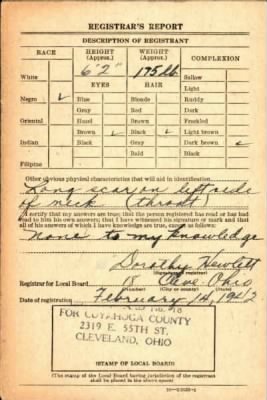 REGISTRAR'S REPORT
DESCRIPTION OF REGISTRANT
RACE HEIGHT (Approx.) WEIGHT (Approx.) COMPLEXION
6'2" 175 lb.
White EYES HAIR Sallow
Light
Negro ✓ Blue Blonde Ruddy
Gray Red Dark
Oriental Hazel Brown Freckled
Brown ✓ Black ✓ Light brown
Indian Black Gray Dark brown ✓
Bald Black
Filipino
Other obvious physical characteristics that will aid in identification
Long scar on left side
of neck (throat)
I certify that my answers are true; that the person registered has read or has had
read to him his own answers; that I have witnessed his signature or mark and that
all of his answers of which I have knowledge are true, except as follows:
None to my knowledge
Dorothy Hewlett
(Signature of registrar)
Registrar for Local Board Cleve. Ohio
(Number) (City or county) (State)
Date of registration February 14, 1942
FOR CUYAHOGA COUNTY
2319 E. 55TH ST.
CLEVELAND, OHIO
(STAMP OF LOCAL BOARD)
(The stamp of the Local Board having jurisdiction of the registrant
shall be placed in the above space)